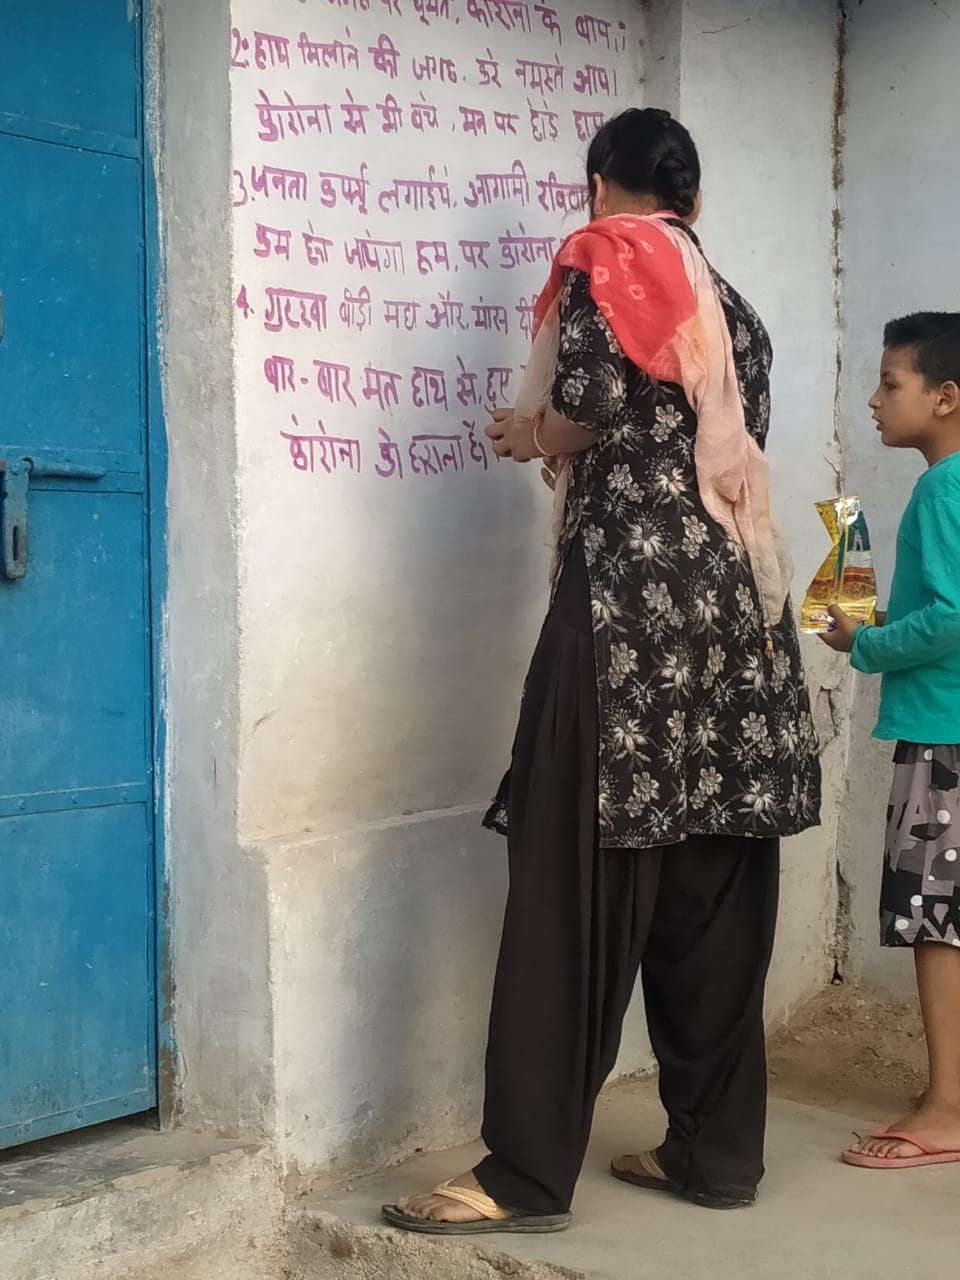 पर घूमते, कोरोना के बाप,;
2: हाथ मिलाने की जगह, करे नमस्ते आप।
कोरोना से भी बचे, मन पर छोड़े छाप
3. जनता कर्फ्यू लगाईये, आगामी रविवार
कम हो जायेगा हम, पर कोरोना
4. गुटखा बीड़ी मद्य और, मांस
बार-बार मत हाथ से, छुए
कोरोना को हराना है